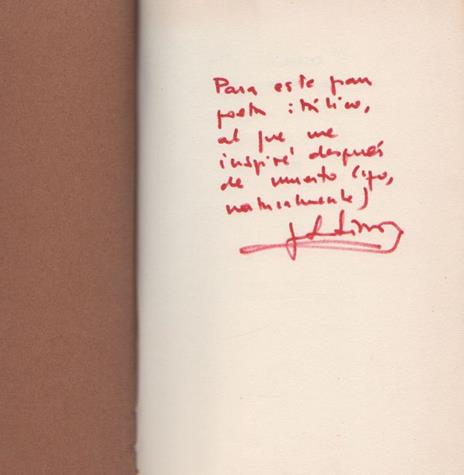 Para este gran
poeta itálico,
al que me
inspiré después
de muerto (yo,
naturalmente)